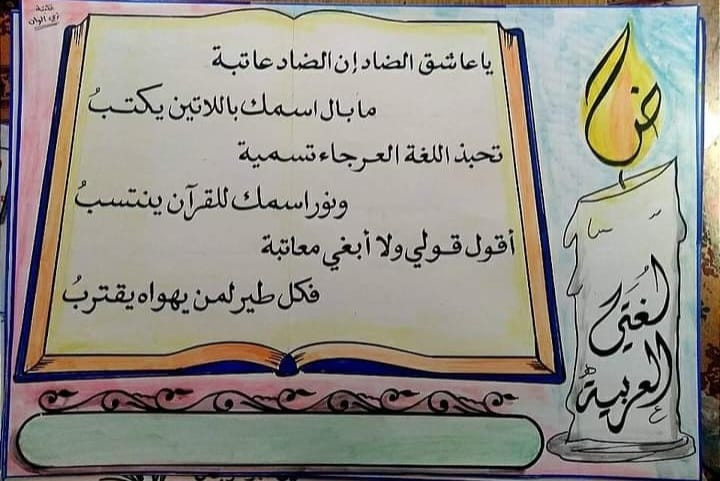 ياعاشق الضاد إن الضاد عاتبة
مابال اسمك باللاتين يكتبُ
تحبذ اللغة العرجاء تسمية
ونور اسمك للقرآن ينتسبُ
أقول قولي ولا أبغي معاتبة
فكل طير لمن يهواه يقتربُ
ض
لُغتي
العربية